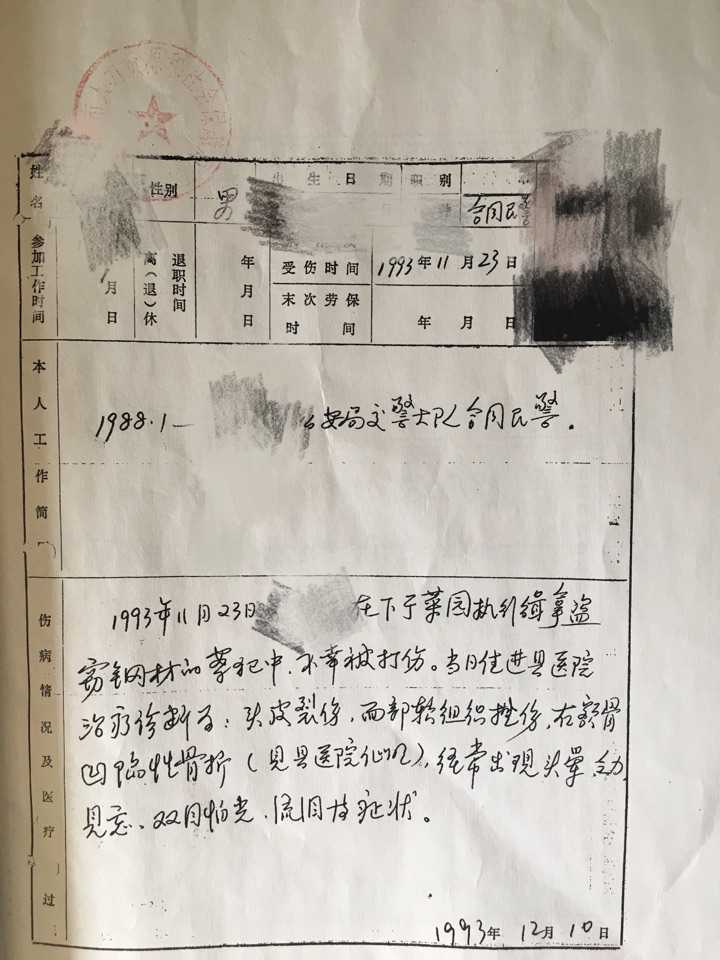 姓名 性别 男 出生日期 类别 合同民警
参加工作时间 月 日 离(退)休 退职时间 年 月 日 受伤时间 1993年11月23日
末次劳保时间 年 月 日
本人工作简
1988.1— 安局交警大队合同民警。
伤病情况及医疗过
1993年11月23日 在下于菜园执行缉拿盗
窃钢材的罪犯中,不幸被打伤。当日住进县医院
治疗诊断为:头皮裂伤,面部软组织挫伤,右额骨
凹陷性骨折(见县医院),经常出现头晕、
见忘、双目怕光、流泪
症状。
1993年12月10日